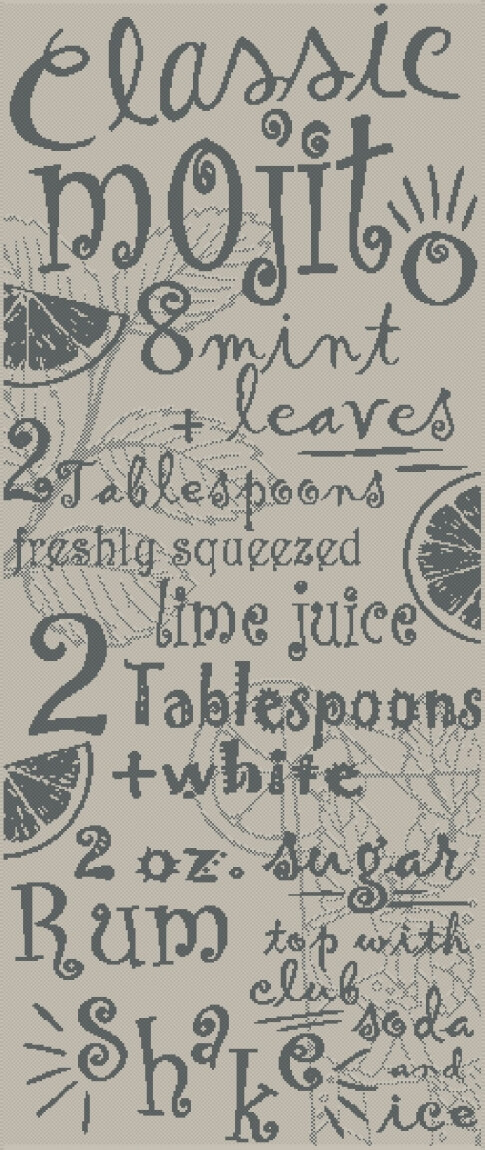 Classic
mojito
8 mint
+ leaves
2 Tablespoons
freshly squeezed
lime juice
2 Tablespoons
+ white
sugar
2 oz.
Rum
top with
club
soda
and
ice
Shake